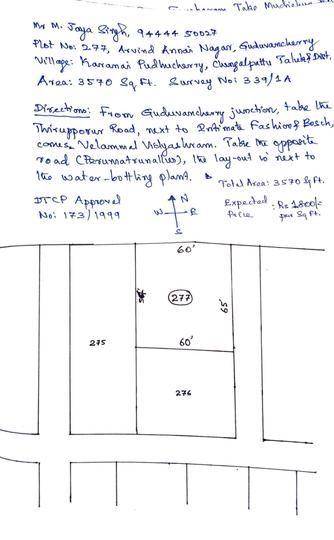 Mr M. Jaya Singh, 94444 50027
Plot No: 277, Arvind Annai Nagar, Guduvancherry
Village: Karanai Pudhucherry, Chengalpattu Taluk & Dist.
Area: 3570 Sq Ft. Survey No: 339/1A
Directions: From Guduvancherry junction, take the
Thiruporur Road, next to Intimate Fashions & Bosch,
comes Velammal Vidyashram. Take the opposite
road (Perumattunallur), the lay-out is next to
the water-bottling plant.
Total Area: 3570 Sq Ft.
DTCP Approved
No: 173/1999
N
W E
S
Expected Price : Rs 1800/= per Sq Ft.
60'
277
65'
275
60'
276